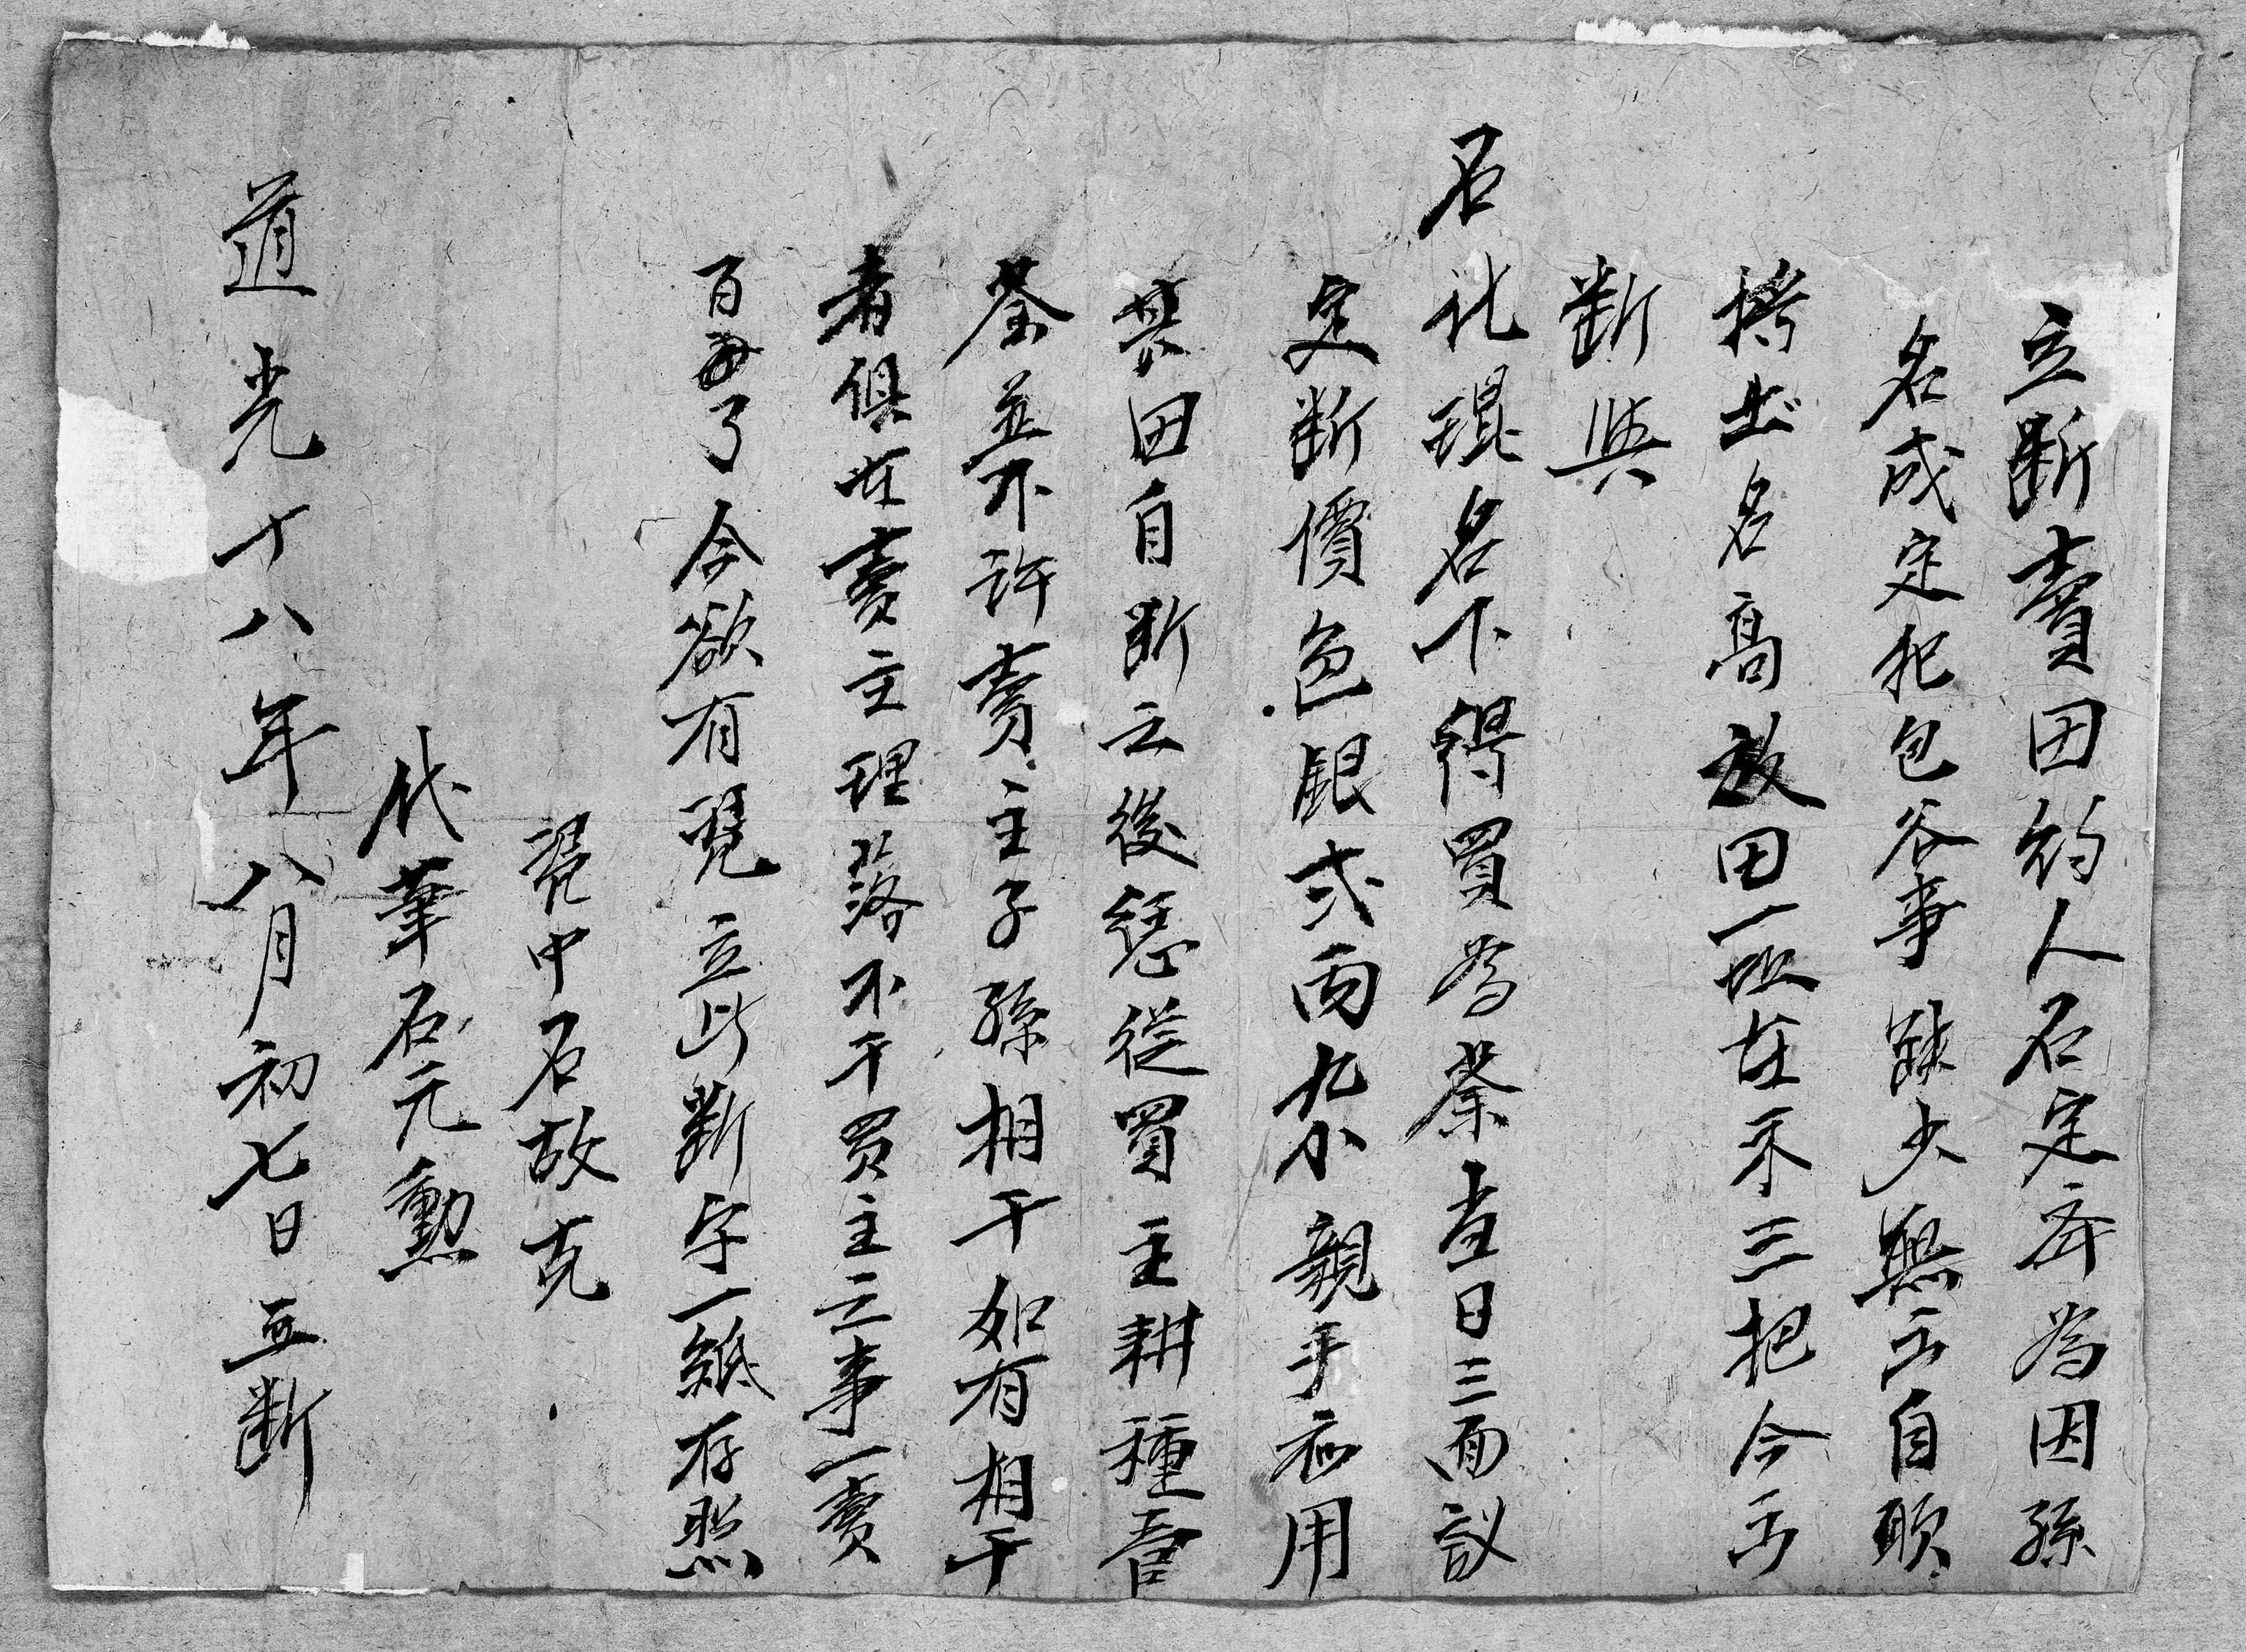 立断賣田約人石定齐為因孫
名成定犯包谷事缺少無出自願
将出名高放田一坵在禾三把今出
断與
石化琨名下得買為業当日三面議
定断價色銀弍両九分親手应用
其田自断之後恁從買主耕種管
業並不許賣主子孫相干如有相干
者俱在賣主理落不干買主之事一賣
百了今欲有凭立此断字一紙存照
凭中石故克
代筆石元勳
道光十八年八月初七日立断